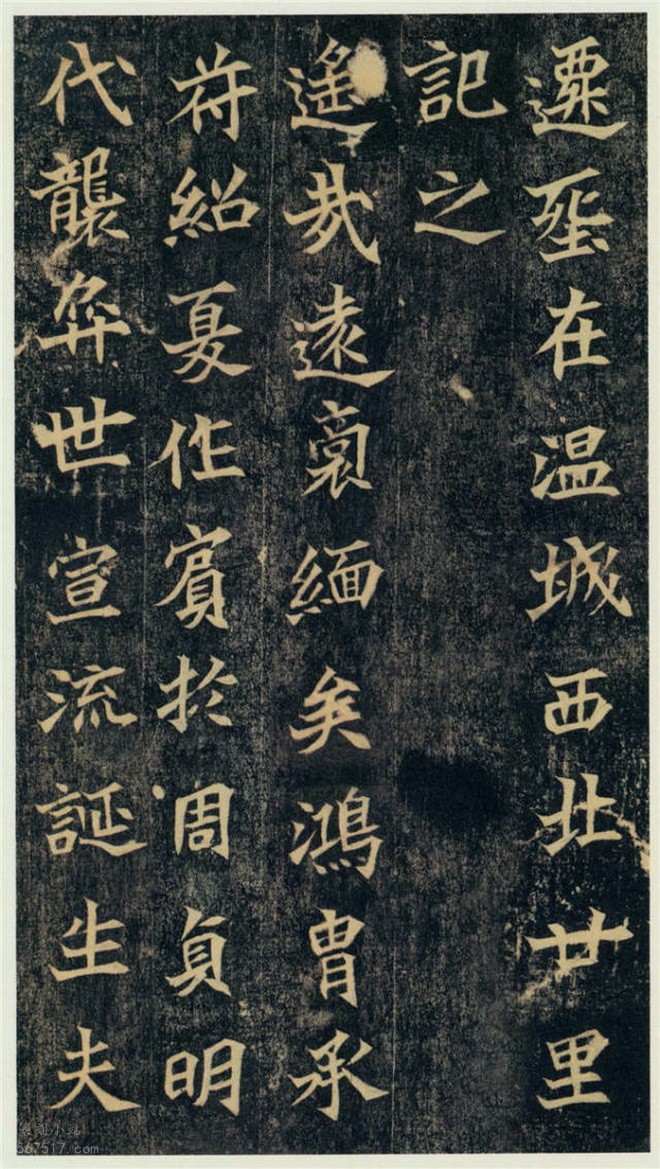 遷葬在温城西北廿里
記之
遙哉遠裔緬矣鴻胄承
符紹夏作賓於周貞明
代襲弈世宣流誕生夫
567517.com